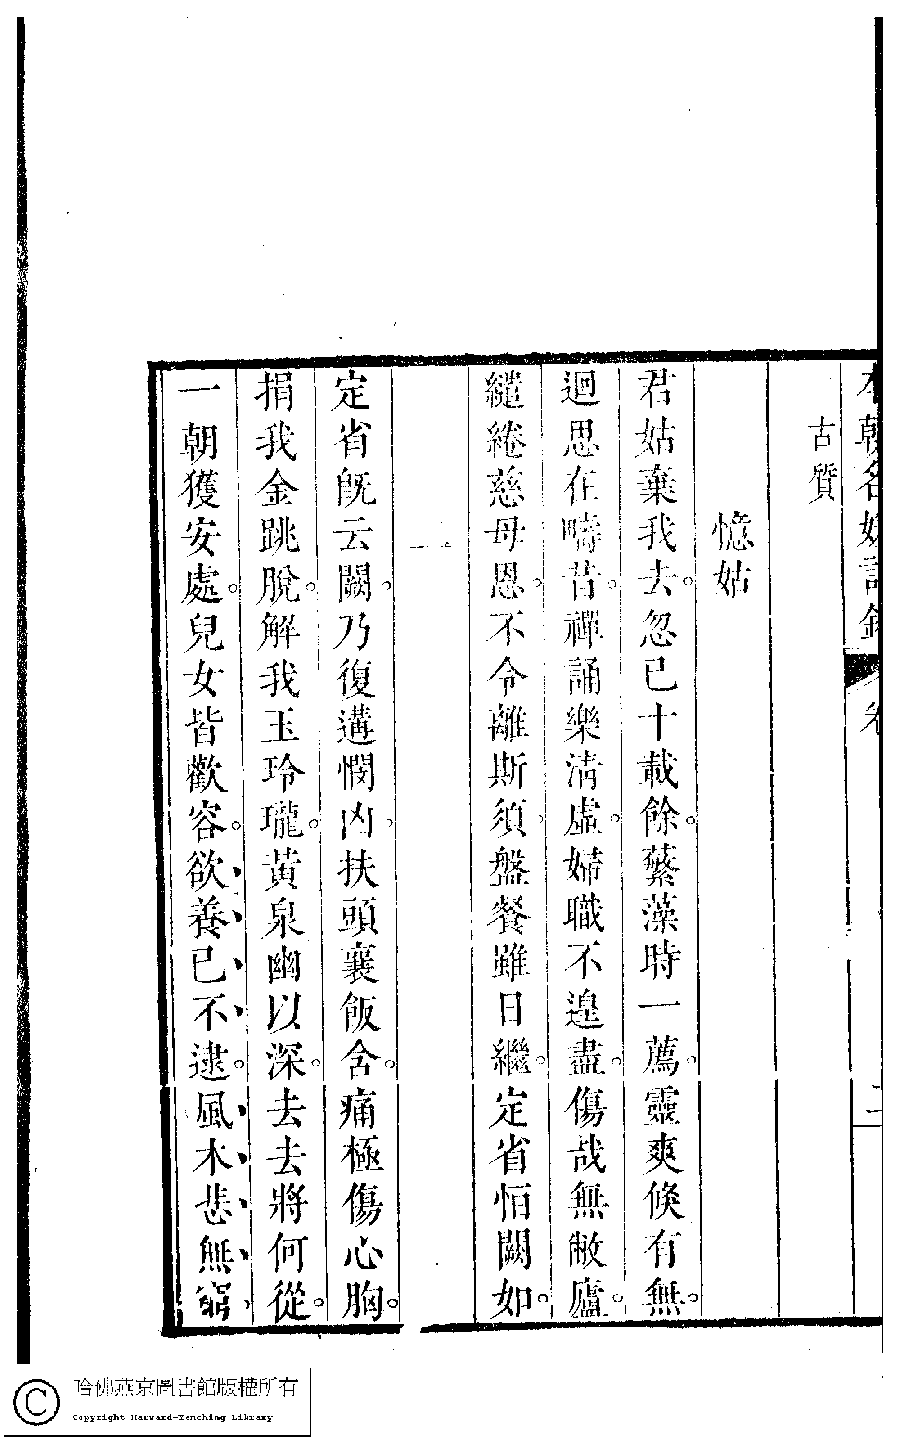 本朝名媛詩鈔 卷 二
古質
憶姑
君姑棄我去。忽已十載餘。蘩藻時一薦。靈爽倏有無。
迴思在疇昔。禪誦樂清虛。婦職不遑盡。傷哉無敝廬。
繾綣慈母恩。不令離斯須。盤餐雖日繼。定省怕闕如。
二
定省旣云闕。乃復遘憫凶。扶頭襄飯含。痛極傷心胸。
捐我金跳脫。解我玉玲瓏。黃泉幽以深。去去將何從。
一朝獲安處。兒女皆歡容。欲養已不逮。風木悲無窮
哈佛燕京圖書館版權所有
Copyright Harvard-Yenching Library